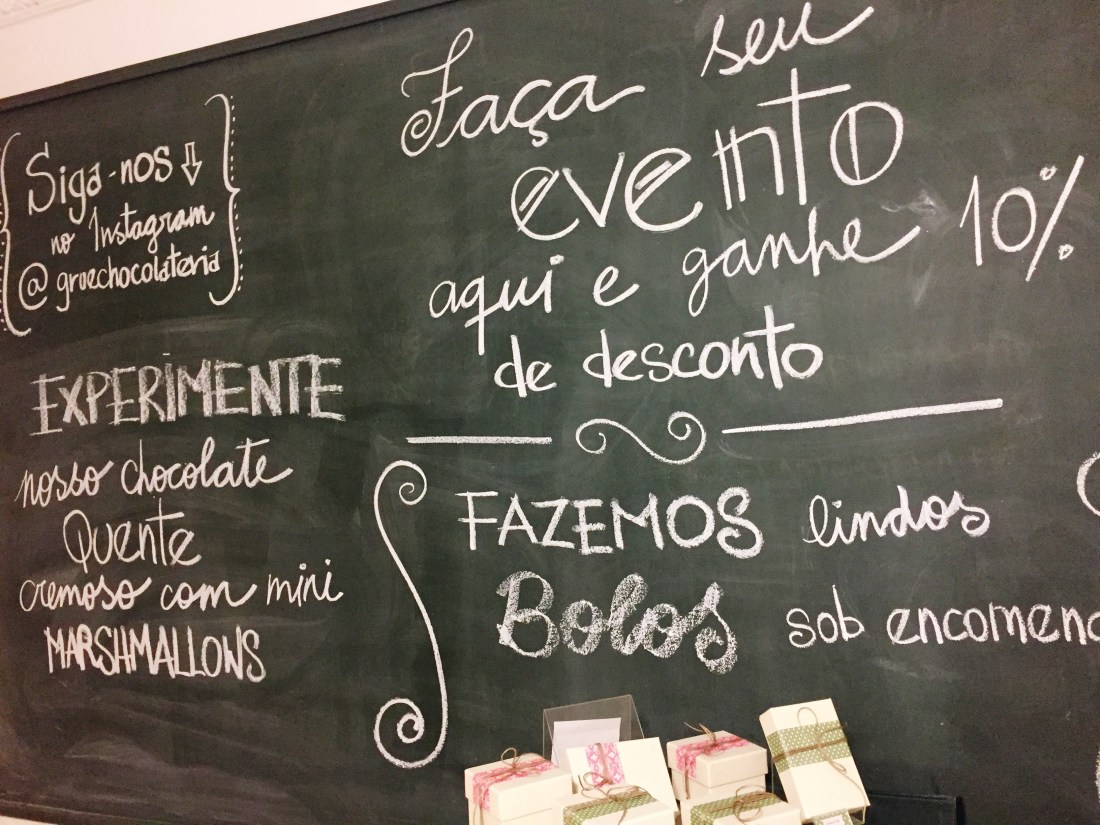 Siga-nos
no Instagram
@gruechocolateria
EXPERIMENTE
nosso chocolate
Quente
cremoso com mini
MARSHMALLOWS
Faça seu
evento
aqui e ganhe 10%
de desconto
FAZEMOS lindos
Bolos sob encomen